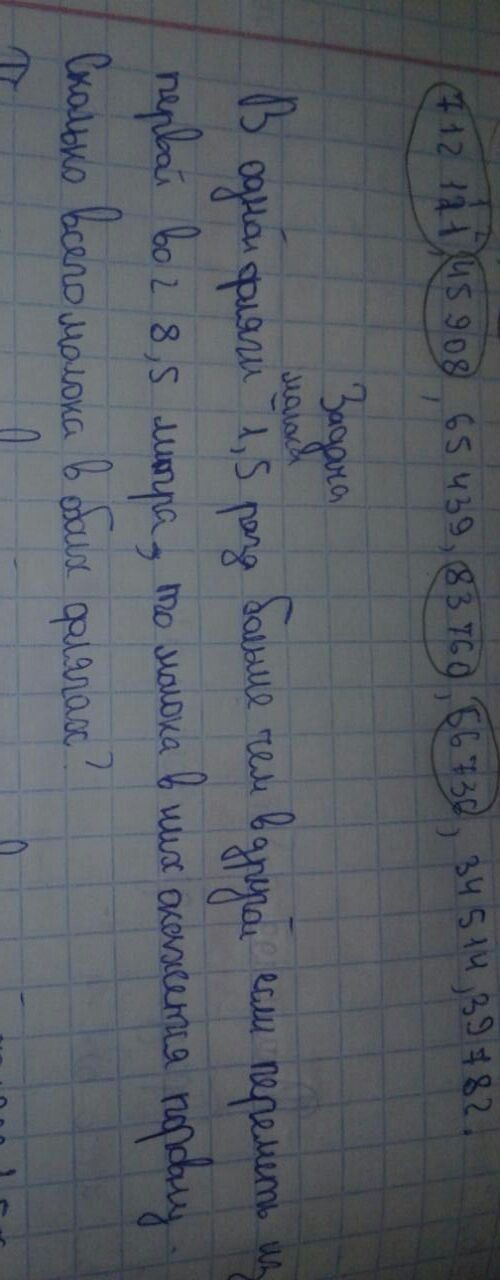 45908, 65439, 83760, 56736, 34514, 39782.
Задача
молока
В одной фляги 1,5 раза больше чем в другой если перелить из
первой во 2 8,5 литра, то молока в них окажется поровну.
Сколько всего молока в обоих флягах?